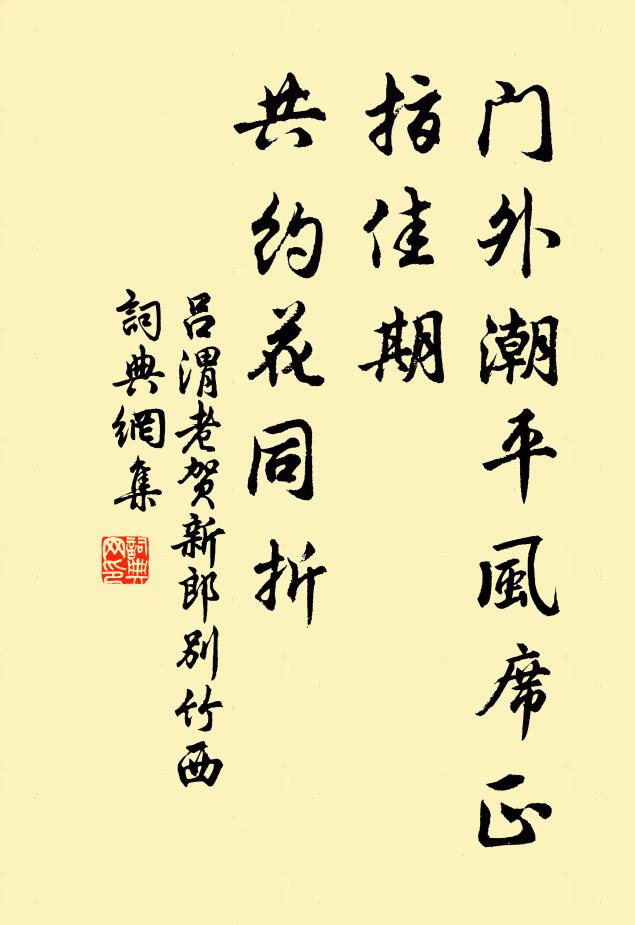 门外潮平風席正
指佳期
共约花同折
吕渭老贺新郎别竹西
詞典網集
詞典網印